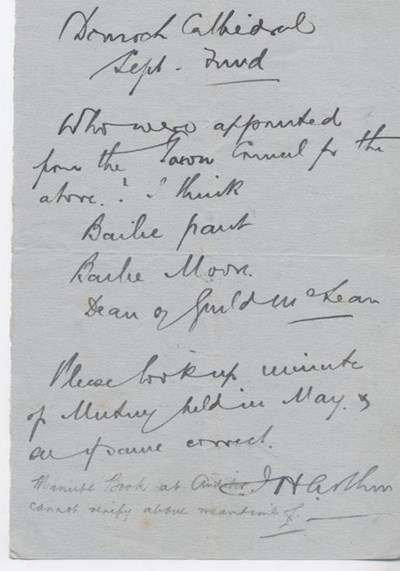 Dornoch Cathedral
Sept. Fund
Who were appointed
from the Town Council for the
above? I think
Bailie Grant
Bailie Moore.
Dean of Guild McLean
Please look up minute
of Meeting held in May &
if same correct.
Minute Book at
cannot verify above meantime